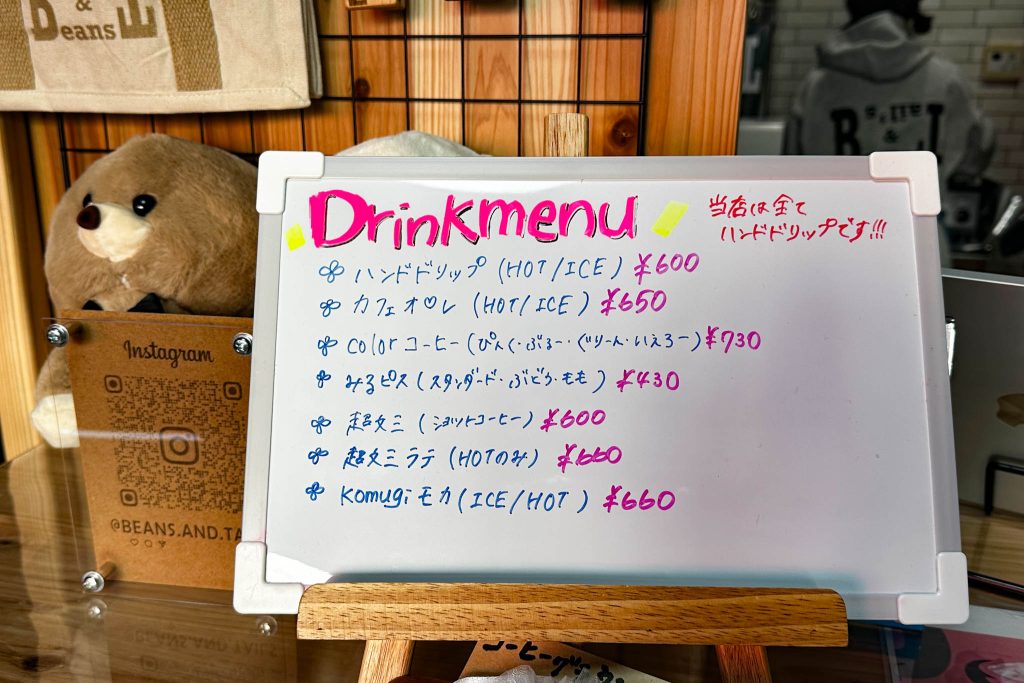 & 
Beans
Drinkmenu
当店は全て
ハンドドリップです!!!
ハンドドリップ (HOT/ICE) ¥600
カフェオ♡レ (HOT/ICE) ¥650
colorコーヒー(ぴんく・ぶるー・ぐりーん・いえろー) ¥730
みるピス(スタンダード・ぶどう・もも) ¥430
超文ミ (ショットコーヒー) ¥600
超文ミラテ (HOTのみ) ¥660
Komugiモカ(ICE/HOT) ¥660
Instagram
@BEANS.AND.TA